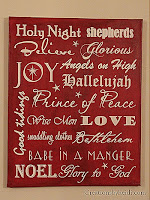 Holy Night shepherds
Believe Glorious
JOY Angels on High
Hallelujah
Prince of Peace
Good tidings
Wise Men LOVE
swaddling clothes Bethlehem
BABE IN A MANGER
NOEL Glory to God